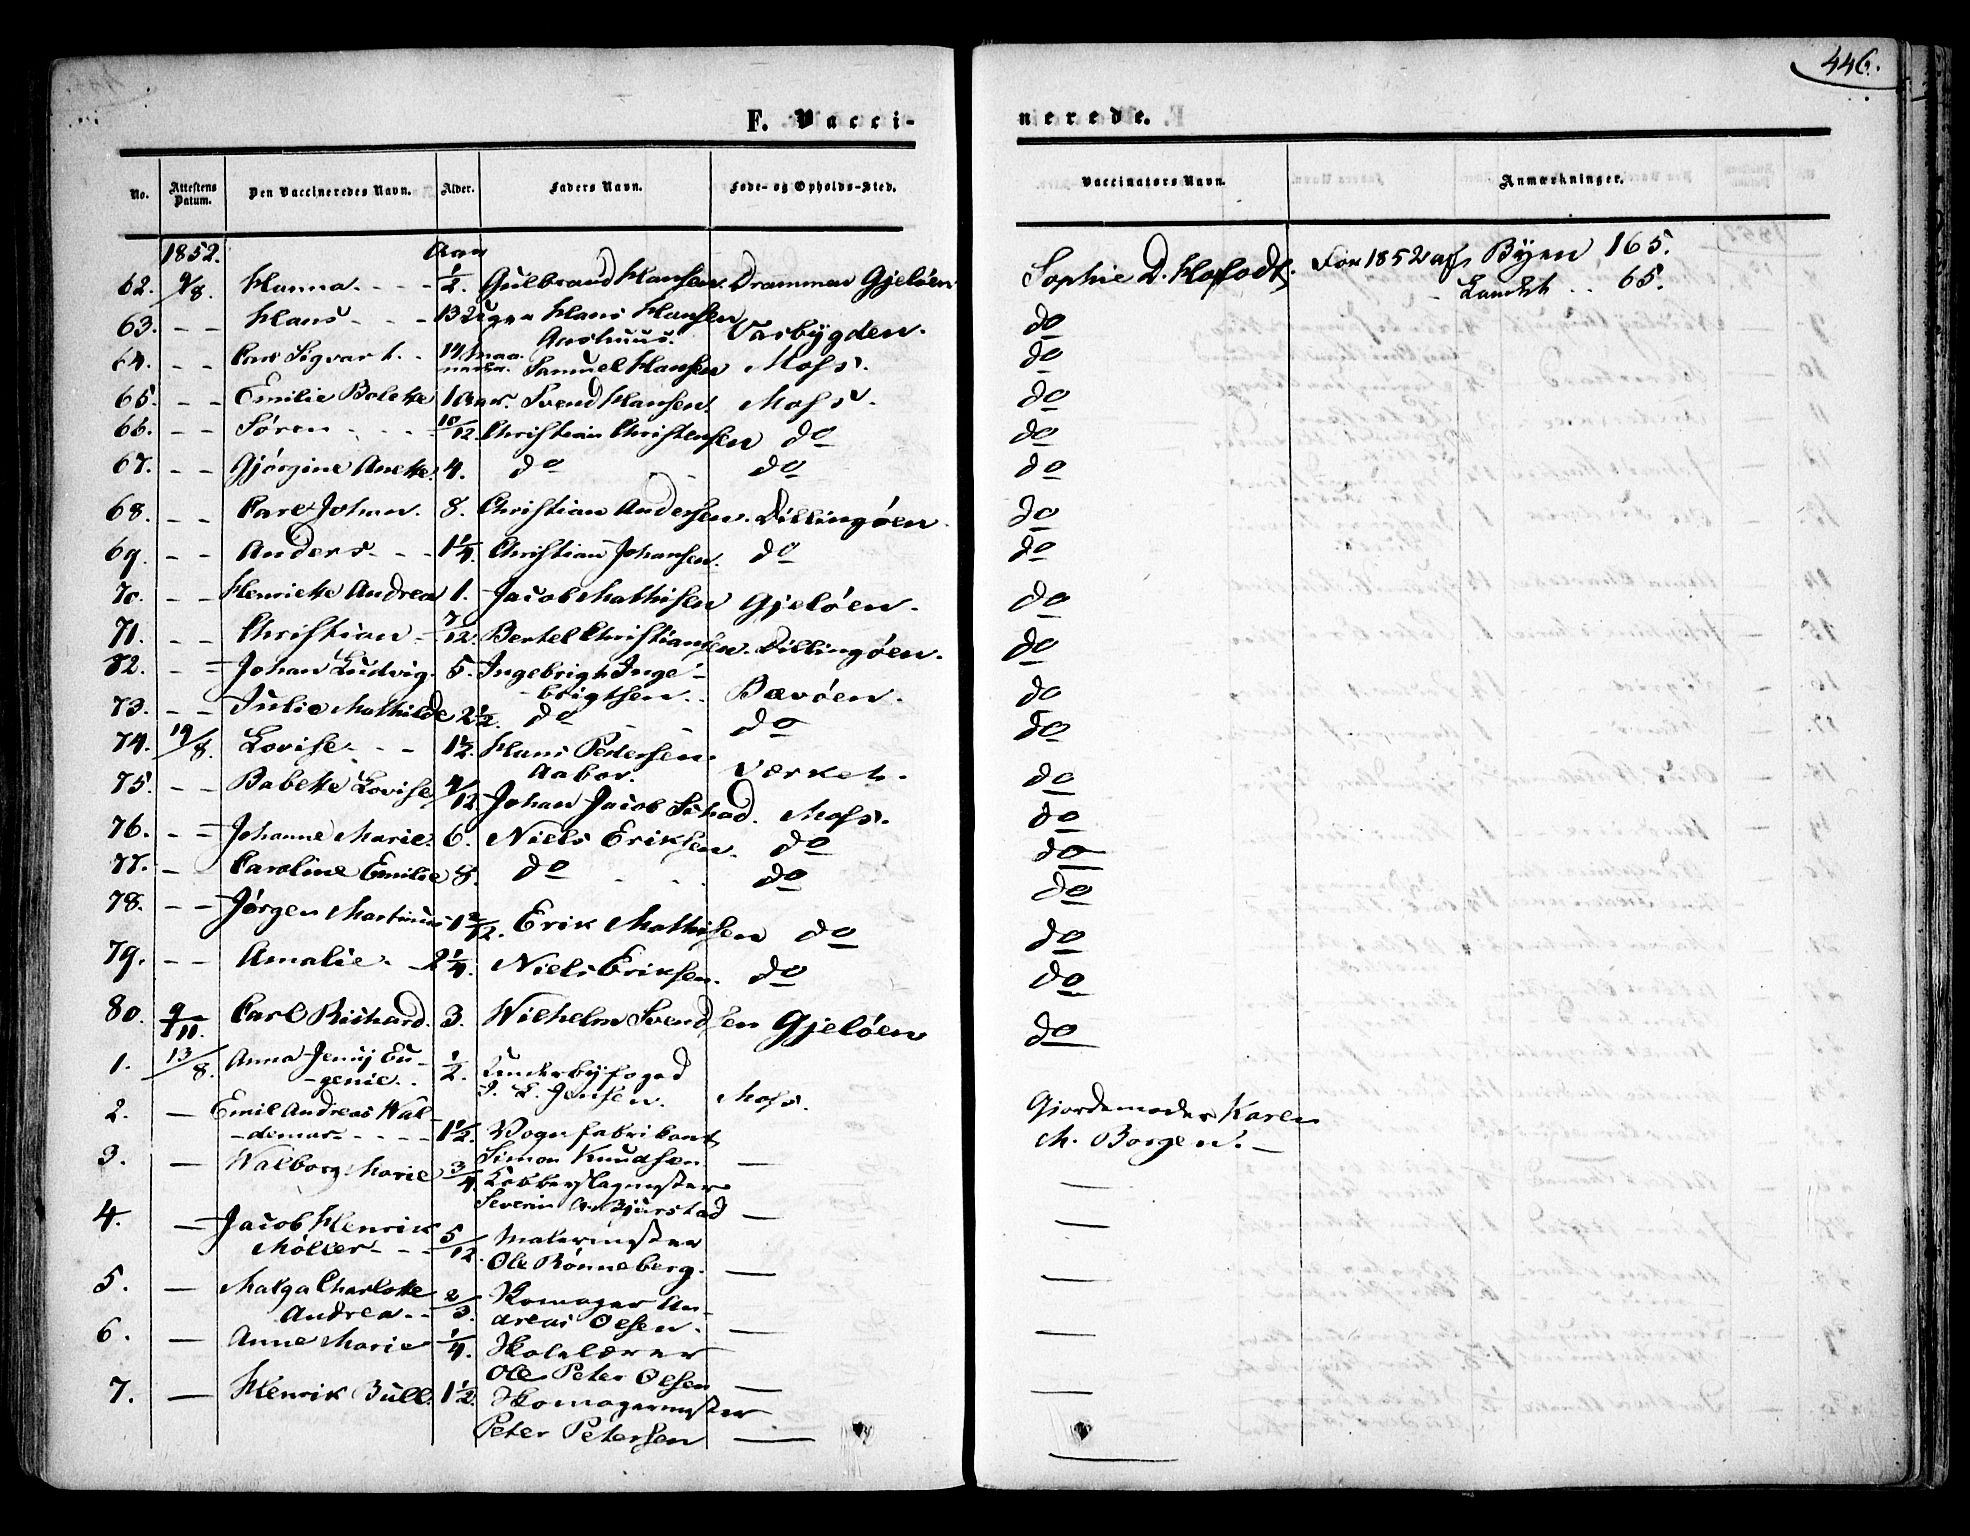 446.
F. Vacci- nerede.
No. Attestens Datum. Den Vaccineredes Navn. Alder. Faders Navn. Føde- og Opholds-Sted. Vaccinators Navn. Anmærkninger.
1852. Aar
62. 9/8. Hanna. - - - 1/2. Gulbrand Hansen. Drammen Gjeløen Sophie D. For 1852 af Byen 165.
- Landet - - 65.
63. - - Hans - - - 13 Uger Hans Hansen
Aashuus. Varbygden. do
64. - - Carl Sigvart. - 14 maa-
neder. Samuel Hansen Moss. do
65. - - Emilie Bolette 1 Aar. Svend Hansen. Moss. do
66. - - Søren - - - 10/12. Christian Christensen do do
67. - - Gjørgine Anette. 4. do - do do
68. - - Carl Johan. 8. Christian Andersen. Dillingøen. do
69. - - Anders - - - 1 1/4. Christian Johansen. do do
70. - - Henriette Andrea 1. Jacob Mathisen Gjeløen. do
71. - - Christian - 7/12. Bertel Christiansen. Dillingøen. do
72. - - Johan Ludvig. 5. Ingebrigt Inge-
brigtsen. - Bævøen. do
73. - - Julie Mathilde 2 1/2. do - - do do
74. 19/8. Lovise. - - 1 1/2. Hans Pedersen.
Aabor. Værket. do
75. - - Babette Lovise 4/12. Johan Jacob Schad. Moss. do
76. - - Johanne Marie. 6. Niels Eriksen. do do
77. - Caroline Emilie 8. do - - do do
78. - - Jørgen Martinus 1 2/12. Erik Mathisen do do
79. - - Amalie. 2 1/4. Niels Eriksen. do do
80. 9/11. Carl Richard. 3. Wilhelm Svendsen Gjeløen do
1. 13/8. Anna Jenny Eu-
-genie. - 1/2. Underbyfoged
J. L. Jensen. Moss. Gjordemoder Karen
M. Borgen. -
2. — Emil Andreas Wal-
-demar - - - - 1 1/2. Vognfabrikant
Simon Knudsen —
3. — Walborg Marie 3/4. Kobberslagmester
Severin Bjurstad — —
4. — Jacob Henrik
Møller - - 5/12. Malermester
Ole Rønneberg. — —
5. — Malga Charlotte
Andrea - - 2/3. Skomager An-
dreas Olsen. — —
6. — Anne Marie 1/4. Skolelærer
Ole Peter Olsen — —
7. — Henrik Bull. 1 1/2. Skomagermester
Peter Petersen — —